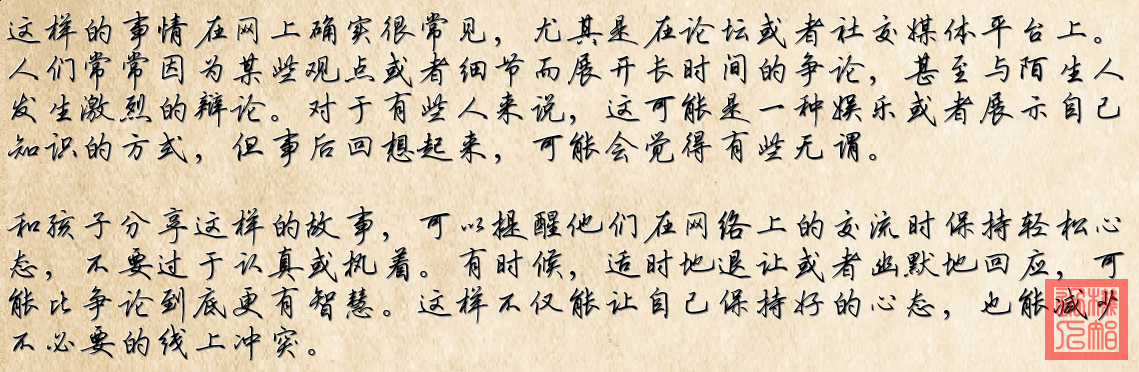 这样的事情在网上确实很常见，尤其是在论坛或者社交媒体平台上。
人们常常因为某些观点或者细节而展开长时间的争论，甚至与陌生人
发生激烈的辩论。对于有些人来说，这可能是一种娱乐或者展示自己
知识的方式，但事后回想起来，可能会觉得有些无谓。
和孩子分享这样的故事，可以提醒他们在网络上的交流时保持轻松心
态，不要过于认真或执着。有时候，适时地退让或者幽默地回应，可
能比争论到底更有智慧。这样不仅能让自己保持好的心态，也能减少
不必要的线上冲突。